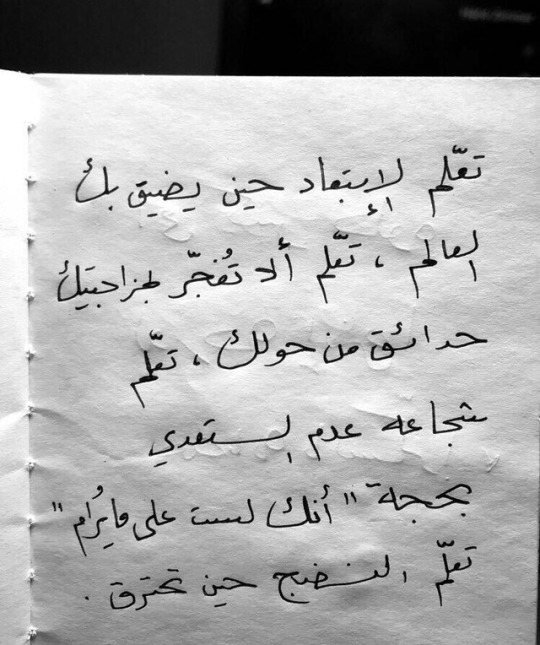 تعّلم الإبتعاد حين يضيق بك
العالم ، تعّلم ألا تُفجّر بمزاجيتك
حدائق من حولك ، تعّلم
شجاعه عدم التعدي
بحجة " أنك لست على مايُرام "
تعلّم النضج حين تحترق .